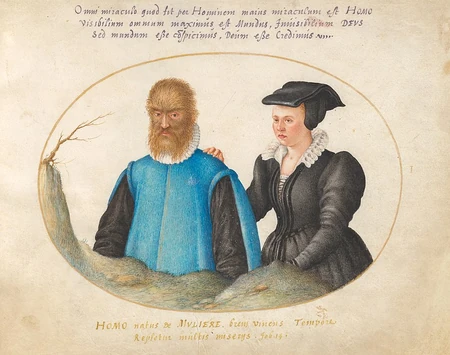 Omni miraculo quod fit per Hominem maius miraculum est HOMO
Visibilium omnium maximus est Mundus, Invisibilium DEUS
Sed mundum esse conspicimus, Deum esse Credimus
HOMO natus de MULIERE, brevi vivens Tempore
Repletur multis miserijs